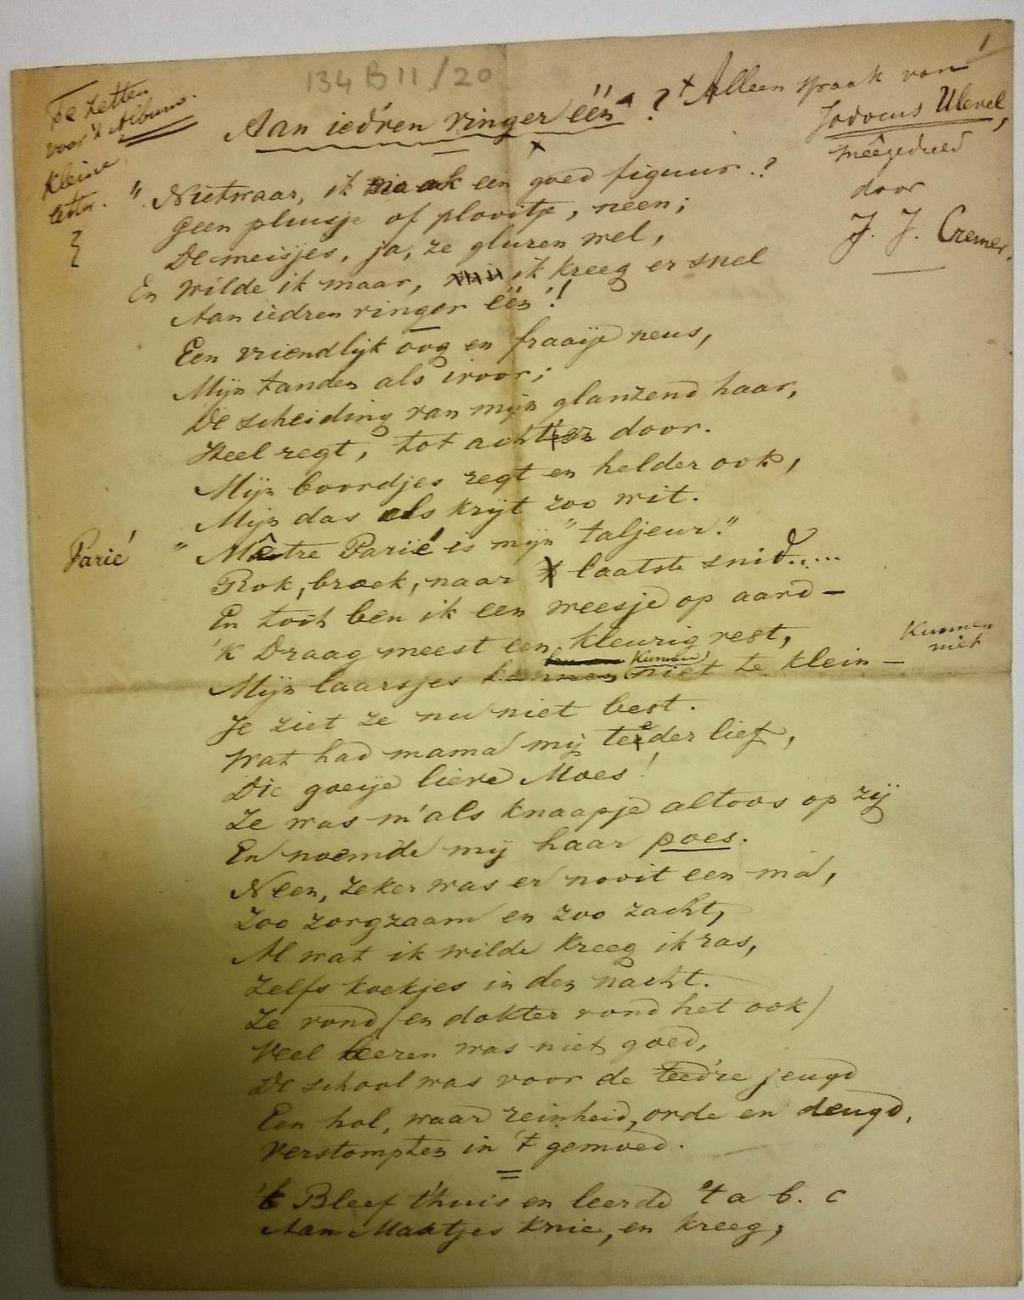 134 B 11/20
1
Te zetten
voor 't Album.
Kleine
letter.
Aan ied'ren vinger één? 
Alleenspraak van
Jodocus Ulevel,
meêgedeeld
door
J. J. Cremer.
"Nietwaar, ik maak een goed figuur?
Geen pluisje of plooitje, neen;
De meisjes, ja, ze gluren wel,
En wilde ik maar, ik kreeg er snel
Aan iedren vinger één!
Een vriendlijk oog en fraaije neus,
Mijn tanden als ivoor;
De scheiding van mijn glanzend haar,
Heel regt, tot achter door.
Mijn boordjes regt en helder ook,
Mijn das als krijt zoo wit.
Parié
"Maître Parié is mijn "taljeur."
Rok, broek, naar laatste snid.....
En toch ben ik een weesje op aard —
'k Draag meest een kleurig vest,
Mijn laarsjes kunnen niet te klein —
Kunnen
niet
Je ziet ze nu niet best.
Wat had mama mij teeder lief,
Die goeije lieve Moes!
Ze was m' als knaapje altoos op zij
En noemde mij haar poes.
Neen, zeker was er nooit een ma,
Zoo zorgzaam en zoo zacht,
Al wat ik wilde kreeg ik ras,
Zelfs koekjes in den nacht.
Ze vond (en dokter vond het ook)
Veel leeren was niet goed,
De school was voor de teêdre jeugd
Een hol, waar reinheid, orde en deugd,
Verstompten in 't gemoed.
'k Bleef t'huis en leerde 't a b. c
Aan Maatjes knie, en kreeg,